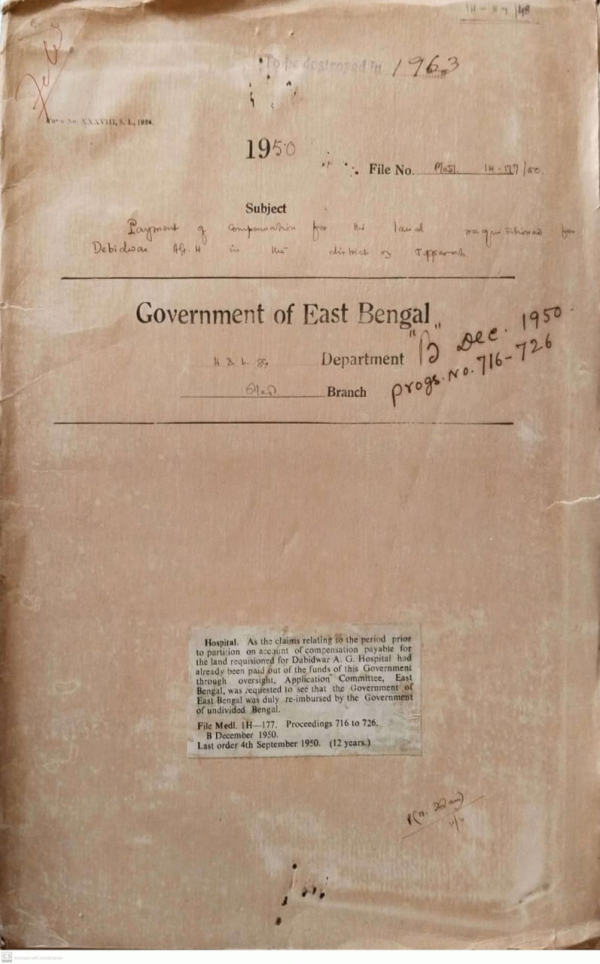 To be destroyed in 1963
Form No. XXXVIII, S. I., 1924.
1950
File No. Medl. 1H-177/50.
Subject
Payment of Compensation for the land requisitioned for
Debidwar A.G.H in the district of Tipperah
Government of East Bengal
"B" Dec. 1950
Department
Progs. No. 716-726
Branch
Hospital. As the claims relating to the period prior
to partition on account of compensation payable for
the land requisioned for Dabidwar A. G. Hospital had
already been paid out of the funds of this Government
through oversight, Application Committee, East
Bengal, was requested to see that the Government of
East Bengal was duly re-imbursed by the Government
of undivided Bengal.
File Medl. 1H—177. Proceedings 716 to 726.
B December 1950.
Last order 4th September 1950. (12 years.)